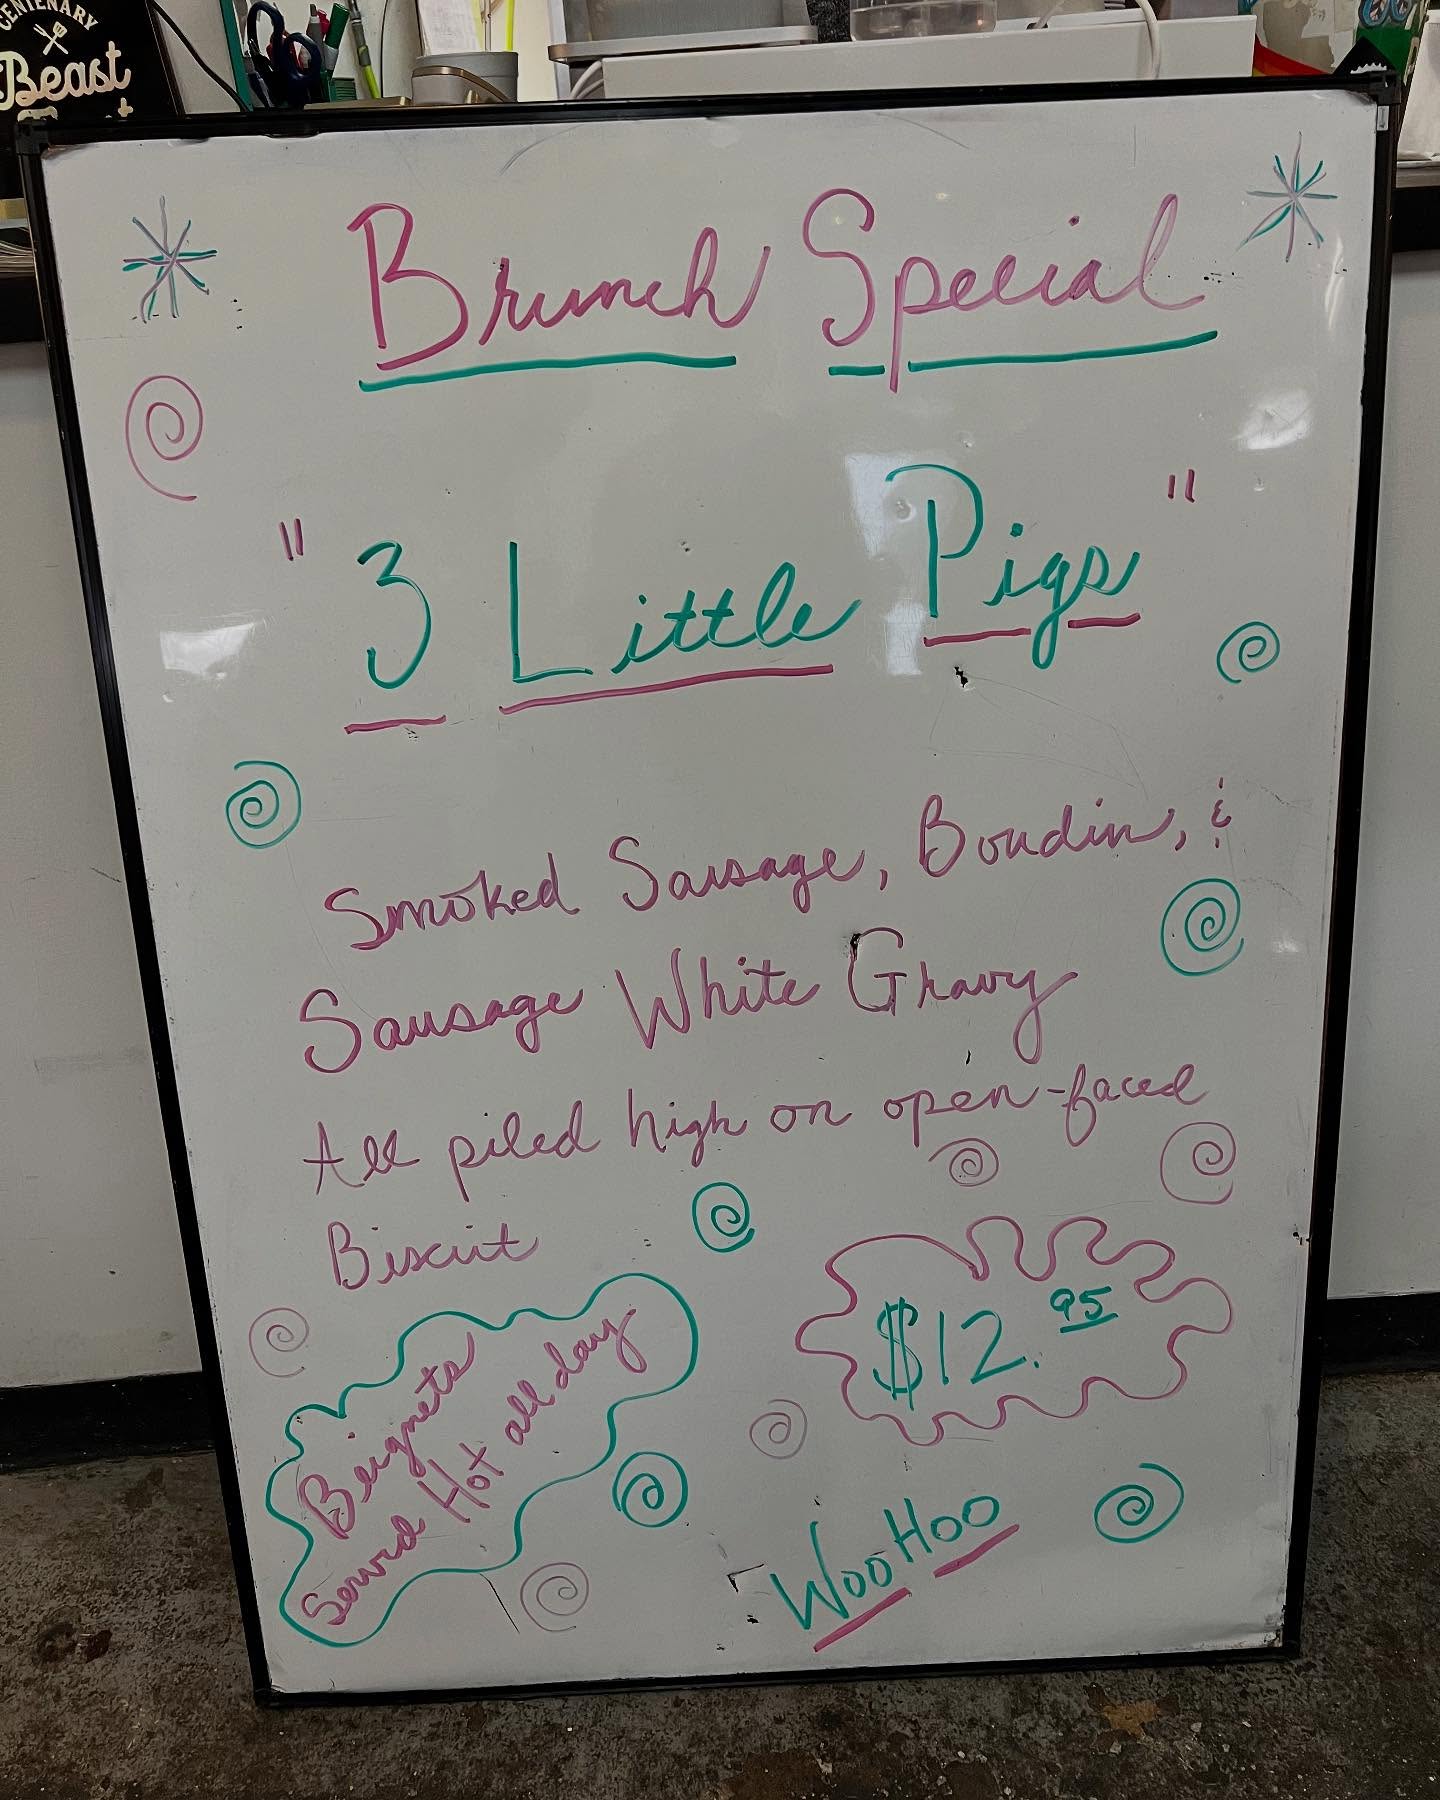 CENTENARY
Beast
Brunch Special
"3 Little Pigs"
Smoked Sausage, Boudin, &
Sausage White Gravy
All piled high on open-faced
Biscuit
$12.95
Beignets
Served Hot all day
WooHoo